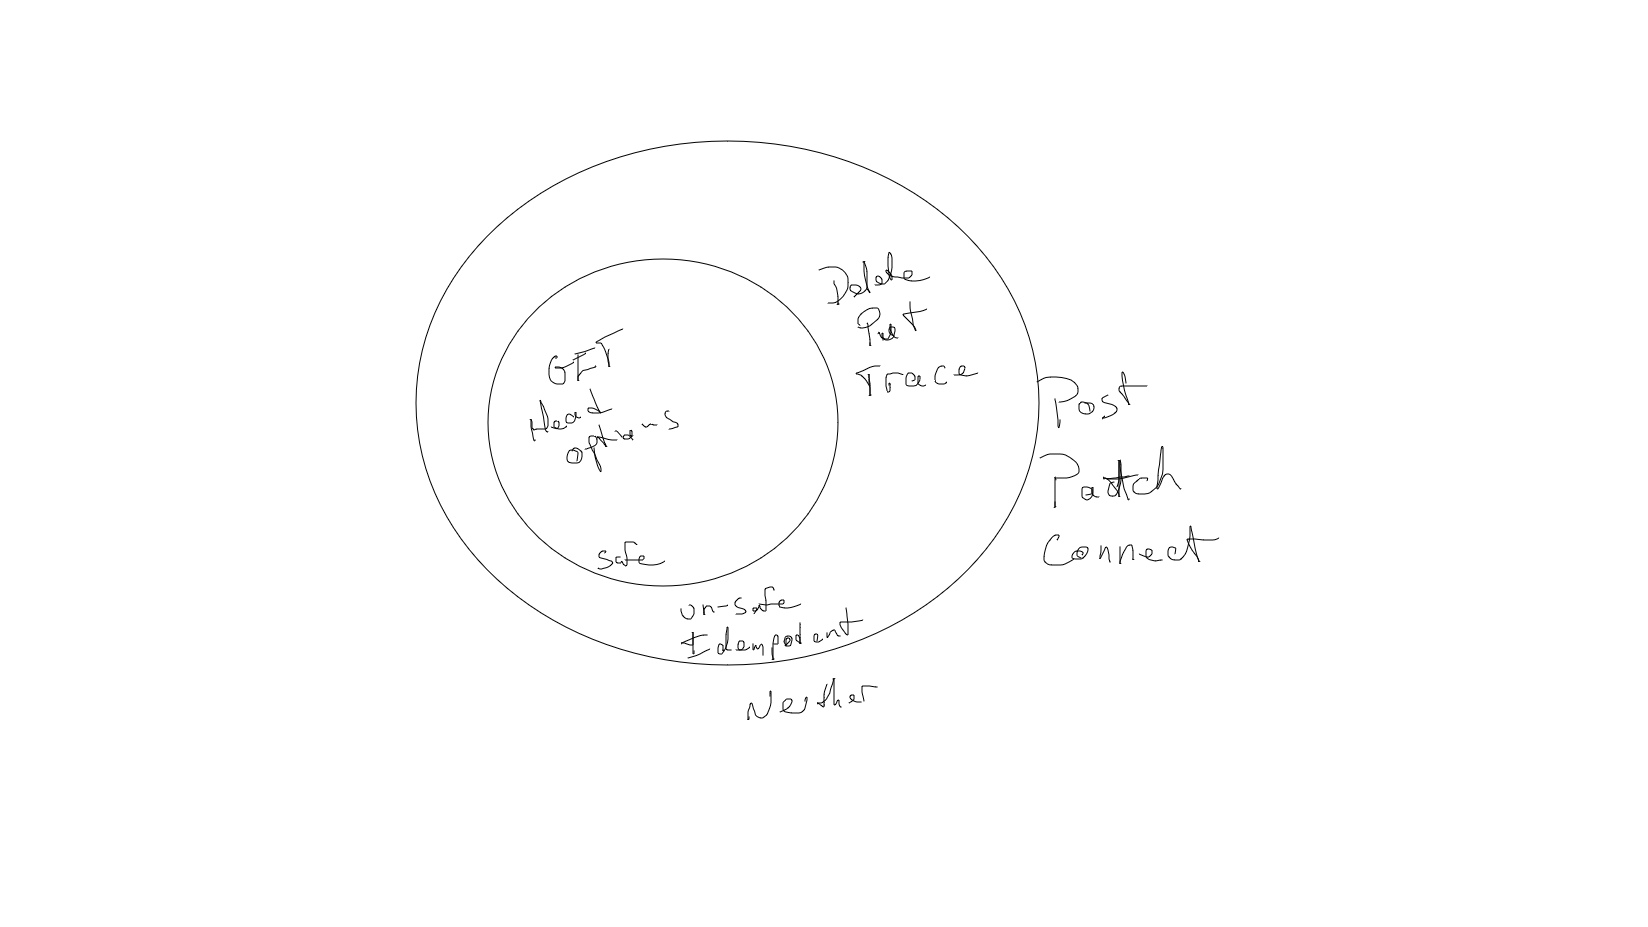 GET
Head
options
safe
Delete
Put
Trace
un-safe
Idempotent
Neither
Post
Patch
Connect